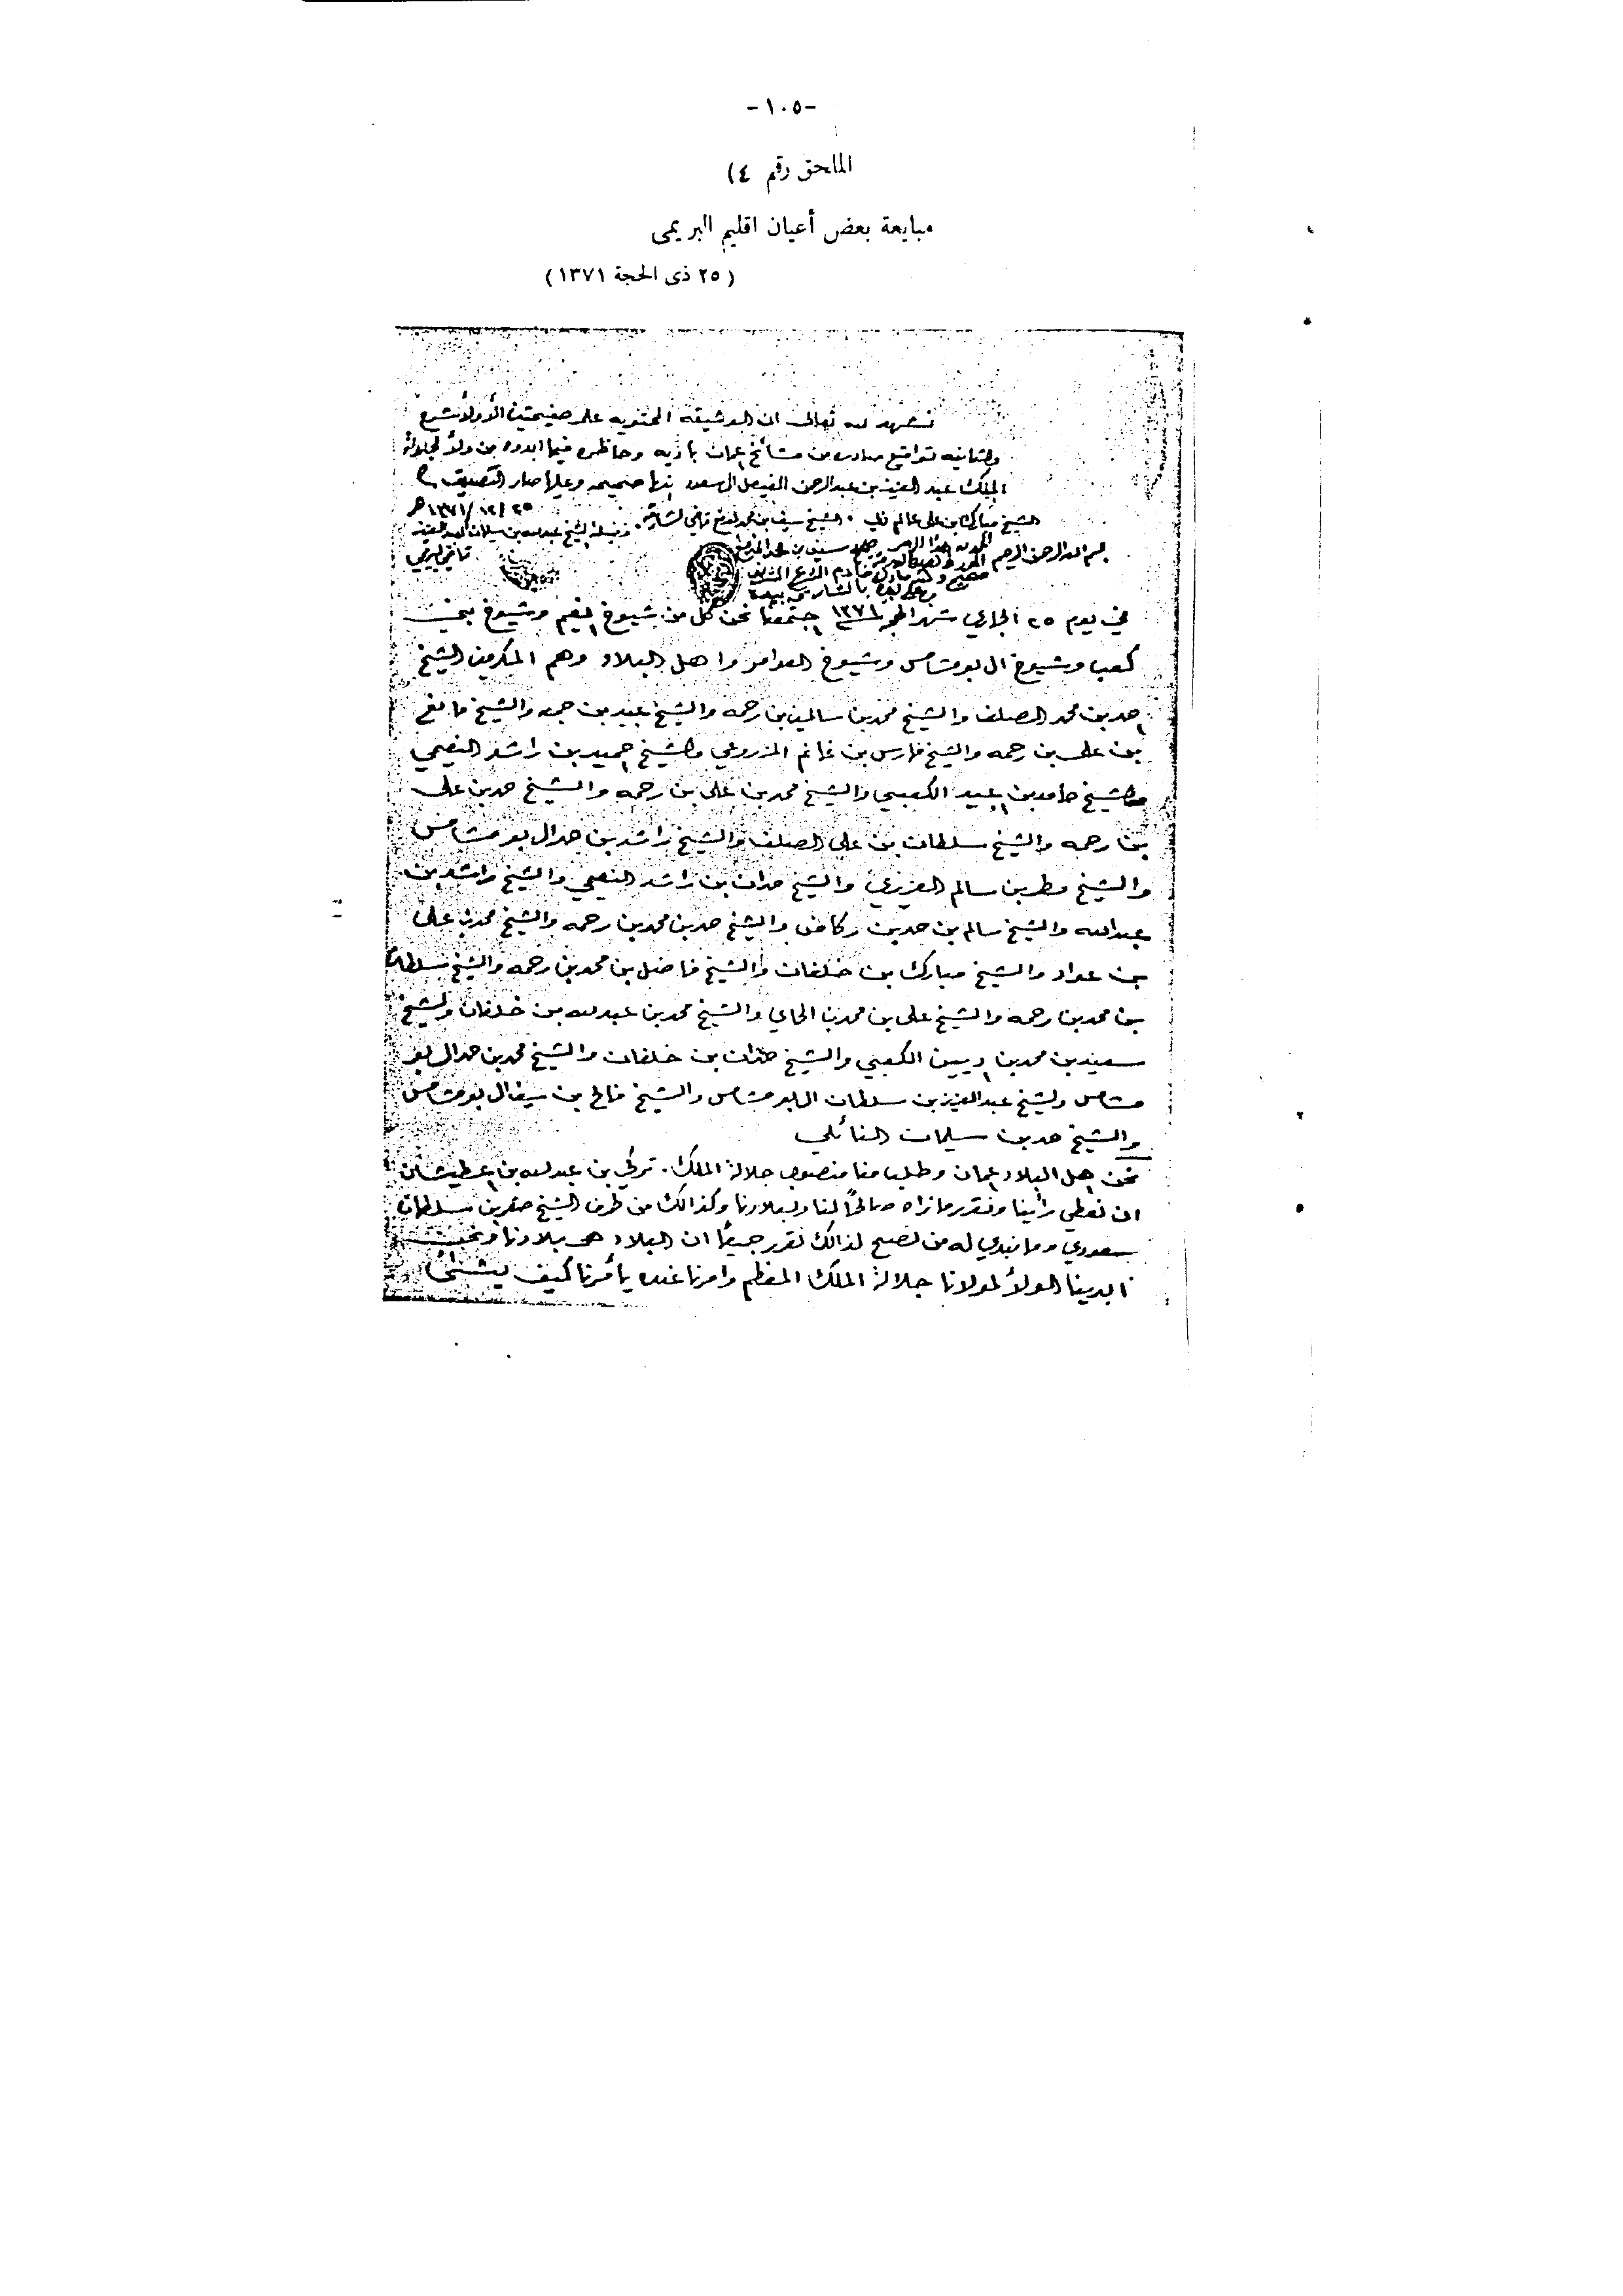 -١٠٥-
الملحق رقم ٤)
مبايعة بعض أعيان اقليم البريمى
(٢٥ ذى الحجة ١٣٧١)
نشهد لله تعالى ان الوثيقه المحتويه على صفيحتين الأولا شرح
والثانيه تواقيع صادره من مشائخ عمان باذيه وحاظره فيما ابدوه من ولأ لجلالة
الملك عبد العزيز بن عبد الرحمن الفيصل ال سعود انها صحيحه وعليها صار التصديق
٢٥/١٢/١٣٧١هـ
الشيخ مبارك بن علي عالم الشيخ سيف بن محمد قاضي الشارقة فضيلة الشيخ عبدالله بن سليمان
قاضي البريمي
بسم الله الرحمن الرحيم
في يوم ٢٥ الجاري شهر الحجه ١٣٧١ اجتمعنا نحن كل من شيوخ نعيم وشيوخ بني
كعب وشيوخ ال بو شامس وشيوخ العوامر واهل البلاد وهم المكرمين الشيخ
احمد بن محمد الصلف والشيخ محمد بن سالمين بن رحمه والشيخ عبيد بن جمعه والشيخ مانع
بن على بن رحمه والشيخ فارس بن غانم المزروعي والشيخ احميد بن راشد النعيمي
والشيخ حامد بن اعبيد الكعبي والشيخ محمد بن على بن رحمه والشيخ حمد بن على
بن رحمه والشيخ سلطان بن علي الصلف والشيخ راشد بن حمد ال بو شامس
والشيخ مطر بن سالم العزيزي والشيخ حمدان بن راشد النعيمي والشيخ راشد بن
عبدالله والشيخ سالم بن حمد بن ركاض والشيخ حمد بن محمد بن رحمه والشيخ محمد بن على
بن عواد والشيخ مبارك بن خلفان والشيخ فاضل بن محمد بن رحمه والشيخ سلطان
بن محمد بن رحمه والشيخ على بن محمد بن الحاي والشيخ محمد بن عبدالله بن خلفان والشيخ
سعيد بن محمد بن اديين الكعبي والشيخ حمدان بن خلفان والشيخ محمد بن حمد ال بو
شامس والشيخ عبد العزيز بن سلطان البو شامس والشيخ فالح بن سيف ال بو شامس
والشيخ حمد بن سليمان النائلي
نحن اهل البلاد اعمان وطلب منا منصوب جلالة الملك. تركي بن عبدالله بن اعطيشان
ان نعطي رأينا ونقرر ما نراه صالحاً لنا ولبلادنا وكذالك من طرف الشيخ صقر بن سلطان
سعودي وما نبدي له من نصح لذالك نقرر جميعاً ان البلاد هي بلادنا ونحن
ابدينا الولأ لمولانا جلالة الملك المعظم وامرنا عنده يأمرنا كيف يشأ